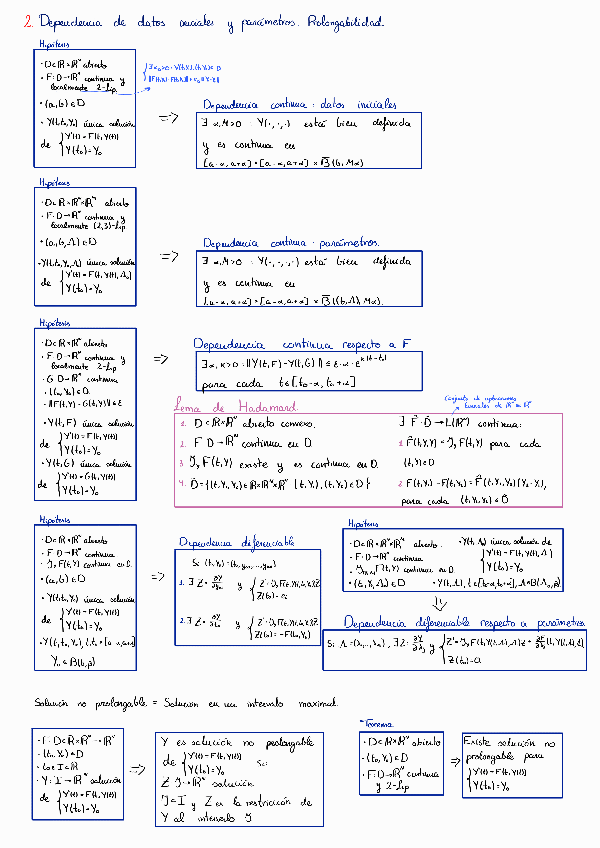 2. Dependencia de datos iniciales y parámetros. Prolongabilidad.
Hipótesis
· D⊂ℝ×ℝᴺ abierto
· F: D→ℝᴺ continua y
localmente 2-Lip
· (a,b)∈D
· Y(t,t₀,Y₀) única solución
de { Y'(t) = F(t,Y(t))
Y(t₀)=Y₀
=>
Dependencia continua: datos iniciales
∃ α,M>0 : Y(·,·,·) está bien definida
y es continua en
[a-α,a+α]×[a-α,a+α]×B̅(b,Mα)
Hipótesis
· D⊂ℝ×ℝᴺ×ℝᴹ abierto
· F: D→ℝᴺ continua y
localmente (2,3)-Lip
· (a,b,Λ)∈D
· Y(t,t₀,Y₀,Λ) única solución
de { Y'(t) = F(t,Y(t),Λ₀)
Y(t₀)=Y₀
=>
Dependencia continua: parámetros.
∃ α,M>0 : Y(·,·,·,·) está bien definida
y es continua en
[a-α,a+α]×[a-α,a+α]×B̅((b,Λ),Mα)
Hipótesis
· D⊂ℝ×ℝᴺ abierto
· F: D→ℝᴺ continua y
localmente 2-Lip
· G: D→ℝᴺ continua
· (t₀,Y₀)∈D.
· ‖F(t,Y)-G(t,Y)‖≤ε
· Y(t,F) única solución
de { Y'(t) = F(t,Y(t))
Y(t₀)=Y₀
· Y(t,G) única solución
de { Y'(t) = G(t,Y(t))
Y(t₀)=Y₀
=>
Dependencia continua respecto a F
∃ α,κ>0 : ‖Y(t,F)-Y(t,G)‖ ≤ ε·α·e^{κ|t-t₀|}
para cada t∈[t₀-α,t₀+α]
Lema de Hadamard.
1. D⊂ℝ×ℝᴺ abierto convexo.
2. F: D→ℝᴺ continua en D.
3. J_Y F(t,Y) existe y es continua en D.
4. D̃={(t,Y₁,Y₂)∈ℝ×ℝᴺ×ℝᴺ : (t,Y₁),(t,Y₂)∈D}
Conjunto de aplicaciones
lineales de ℝᴺ en ℝᴺ
∃ F̃: D̃→L(ℝᴺ) continua:
1. F̃(t,Y,Y) = J_Y F(t,Y) para cada
(t,Y)∈D
2. F(t,Y₂)-F(t,Y₁) = F̃(t,Y₁,Y₂)(Y₂-Y₁),
para cada (t,Y₁,Y₂)∈D̃
Hipótesis
· D⊂ℝ×ℝᴺ abierto
· F: D→ℝᴺ continua
· J_Y F(t,Y) continua en D.
· (a,b)∈D
· Y(t,t₀,Y₀) única solución
de { Y'(t) = F(t,Y(t))
Y(t₀)=Y₀
=>
Dependencia diferenciable
1. ∃ Z = y
2. ∃ Z = y
Z(t₀) = -F(t₀,Y₀)
Hipótesis
· D⊂ℝ×ℝᴺ×ℝᴹ abierto.
· F: D→ℝᴺ continua
continua en D.
· Y(t,Λ) única solución de
{ Y'(t) = F(t,Y(t),Λ)
Y(t₀)=Y₀
Dependencia diferenciable respecto a parámetros
Z(t₀)=0
Solución no prolongable = Solución en un intervalo maximal.
· F: D⊂ℝ×ℝᴺ→ℝᴺ
· (t₀,Y₀)∈D
· t₀∈I⊂ℝ
· Y: I→ℝᴺ solución
de { Y'(t) = F(t,Y(t))
Y(t₀)=Y₀
=>
Y es solución no prolongable
de { Y'(t) = F(t,Y(t))
Y(t₀)=Y₀ si:
Z: J→ℝᴺ solución
J=I y Z es la restricción de
Y al intervalo J
Teorema
· D⊂ℝ×ℝᴺ abierto
· (t₀,Y₀)∈D
· F: D→ℝᴺ continua
y 2-Lip
=>
Existe solución no
prolongable para
{ Y'(t) = F(t,Y(t))
Y(t₀)=Y₀